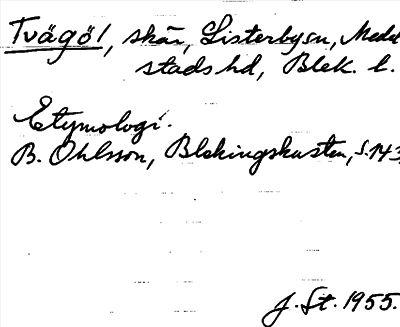 Tvägöl, skär, Listerbysn, Medel
stads hd, Blek. l.
Etymologi.
B. Ohlsson, Blekingskusten, s. 143
J. St. 1955.